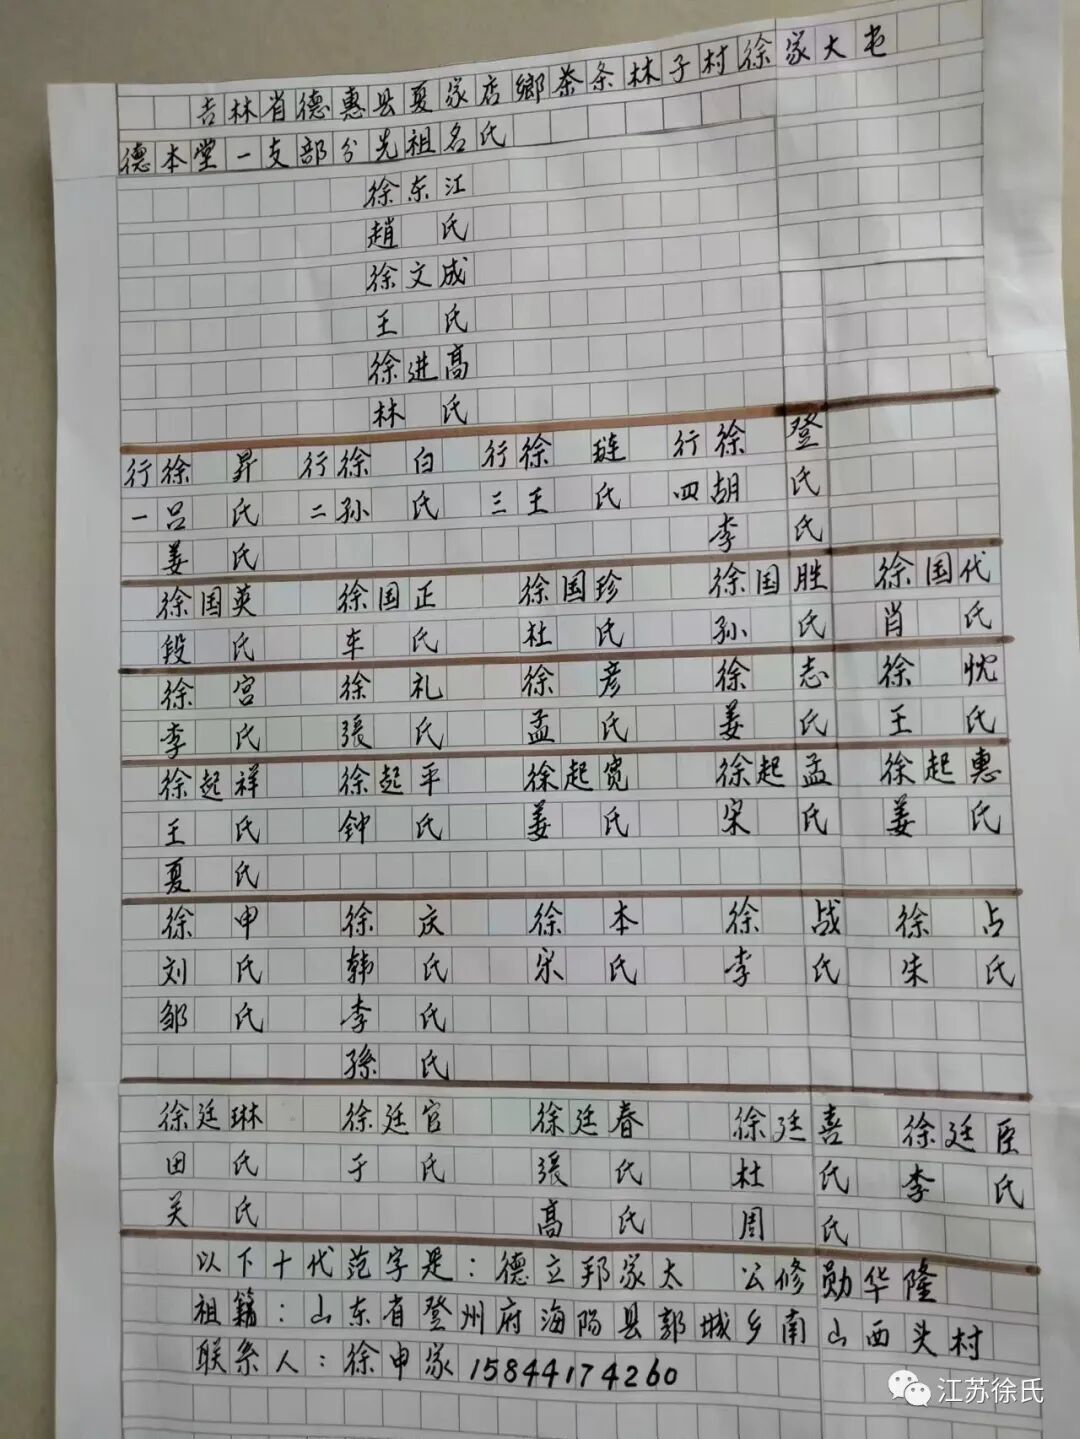 吉林省德惠县夏家店鄉茶条林子村徐家大屯
德本堂一支部分先祖名氏
徐东江
趙 氏
徐文成
王 氏
徐进高
林 氏
行徐 昇 行徐 白 行徐 琏 行徐 登
一吕 氏 二孙 氏 三王 氏 四胡 氏
姜 氏 李 氏
徐国英 徐国正 徐国珍 徐国胜 徐国代
段 氏 车 氏 杜 氏 孙 氏 肖 氏
徐 宫 徐 礼 徐 彦 徐 志 徐 忱
李 氏 張 氏 孟 氏 姜 氏 王 氏
徐起祥 徐起平 徐起宽 徐起孟 徐起惠
王 氏 钟 氏 姜 氏 宋 氏 姜 氏
夏 氏
徐 申 徐 庆 徐 本 徐 战 徐 占
刘 氏 韩 氏 宋 氏 李 氏 朱 氏
邹 氏 李 氏
孫 氏
徐廷琳 徐廷官 徐廷春 徐廷喜 徐廷臣
田 氏 于 氏 張 氏 杜 氏 李 氏
关 氏 高 氏 周 氏
以下十代范字是：德立邦家太 公修勋华隆
祖籍：山东省登州府海阳县郭城乡南山西头村
联系人：徐申家15844174260
江苏徐氏